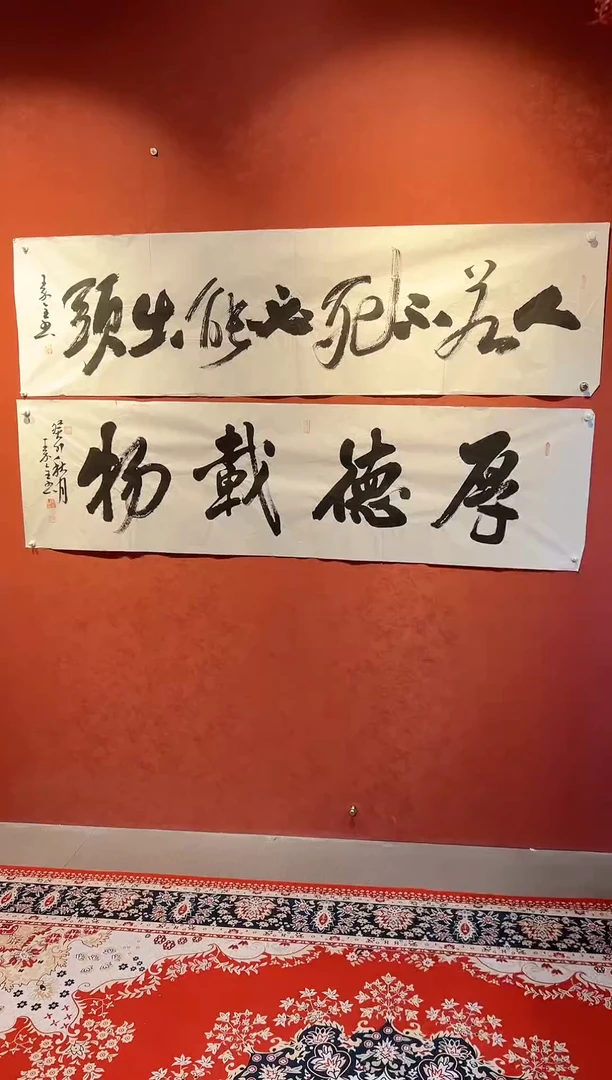 人若不死必能出頭
厚德載物
癸卯秋月